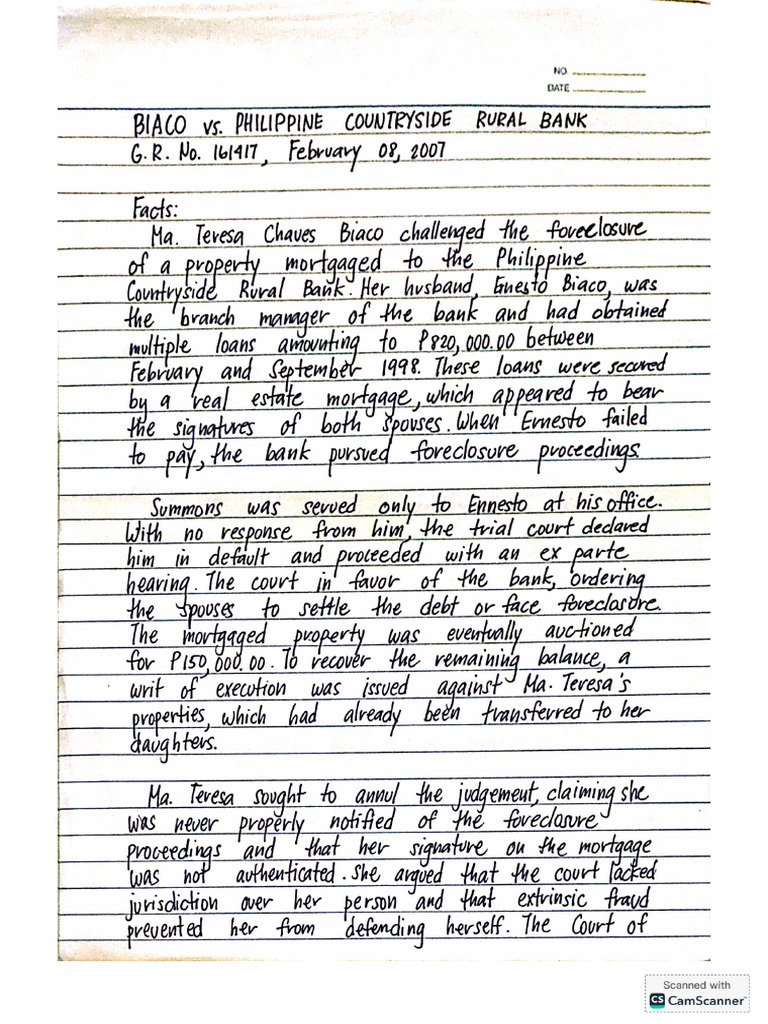 NO.
DATE
BIACO vs. PHILIPPINE COUNTRYSIDE RURAL BANK
G.R. No. 161417, February 08, 2007
Facts:
Ma. Teresa Chaves Biaco challenged the foreclosure
of a property mortgaged to the Philippine
Countryside Rural Bank. Her husband, Enesto Biaco, was
the branch manager of the bank and had obtained
multiple loans amounting to ₱820,000.00 between
February and September 1998. These loans were secured
by a real estate mortgage, which appeared to bear
the signatures of both spouses. When Ernesto failed
to pay, the bank pursued foreclosure proceedings
Summons was served only to Ennesto at his office.
With no response from him, the trial court declared
him in default and proceeded with an ex parte
hearing. The court in favor of the bank, ordering
the spouses to settle the debt or face foreclosure.
The mortgaged property was eventually auctioned
for ₱150,000.00. To recover the remaining balance, a
writ of execution was issued against Ma. Teresa's
properties, which had already been transferred to her
daughters.
Ma. Teresa sought to annul the judgement, claiming she
was never properly notified of the foreclosure
proceedings and that her signature on the mortgage
was not authenticated. She argued that the court lacked
jurisdiction over her person and that extrinsic fraud
prevented her from defending herself. The Court of
Scanned with
CS CamScanner